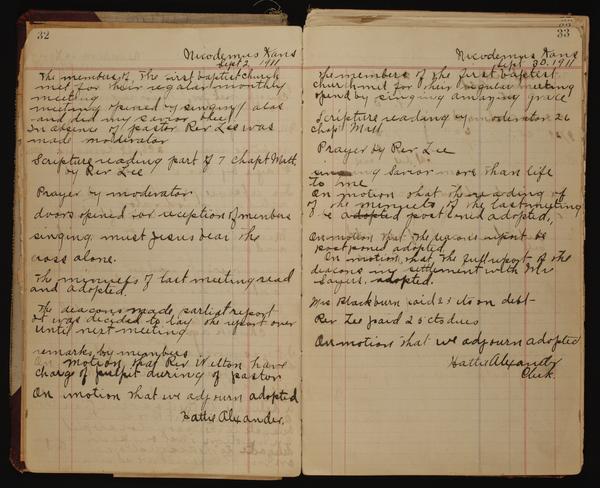 32
Nicodemus Kans
Sept 2, 1911
The members of, The First baptist church
met for their regular monthly
meeting
meeting opened by singing alas
and did my savior bleed
In absence of pastor Rev Lee was
made moderator
Scripture reading part of 7 chapt Matt.
by Rev Lee
Prayer by moderator
doors opened for reception of members
singing must Jesus bear the
cross alone.
The minuets of last meeting read
and adopted
The deacons made, earliest report
it was decided to lay the report over
until next meeting
remarks by members
On motion that Rev Welton have
charge of pulpit during of pastor
On motion that we adjourn adopted
Hattie Alexander.
33
Nicodemus Kans
Sept 30, 1911
The members of the first baptist
church met for their regular meeting
opend by singing amazing grace
Scripture reading by moderator 26
chapt Matt.
Prayer by Rev Lee
singing Savior more than life
to me
On motion that the reading of
of the minuets of the last meeting
be adopted postponed adopted,
On motion that the deacons report be
postponed adopted
On motion, that the full report of the
deacons in settlement with Mr
Sayers, adopted.
Mrs Blackburn paid 25 cts on debt
Rev Lee paid 25 cts dues
On motion that we adjourn adopted
Hattie Alexander
Clerk.